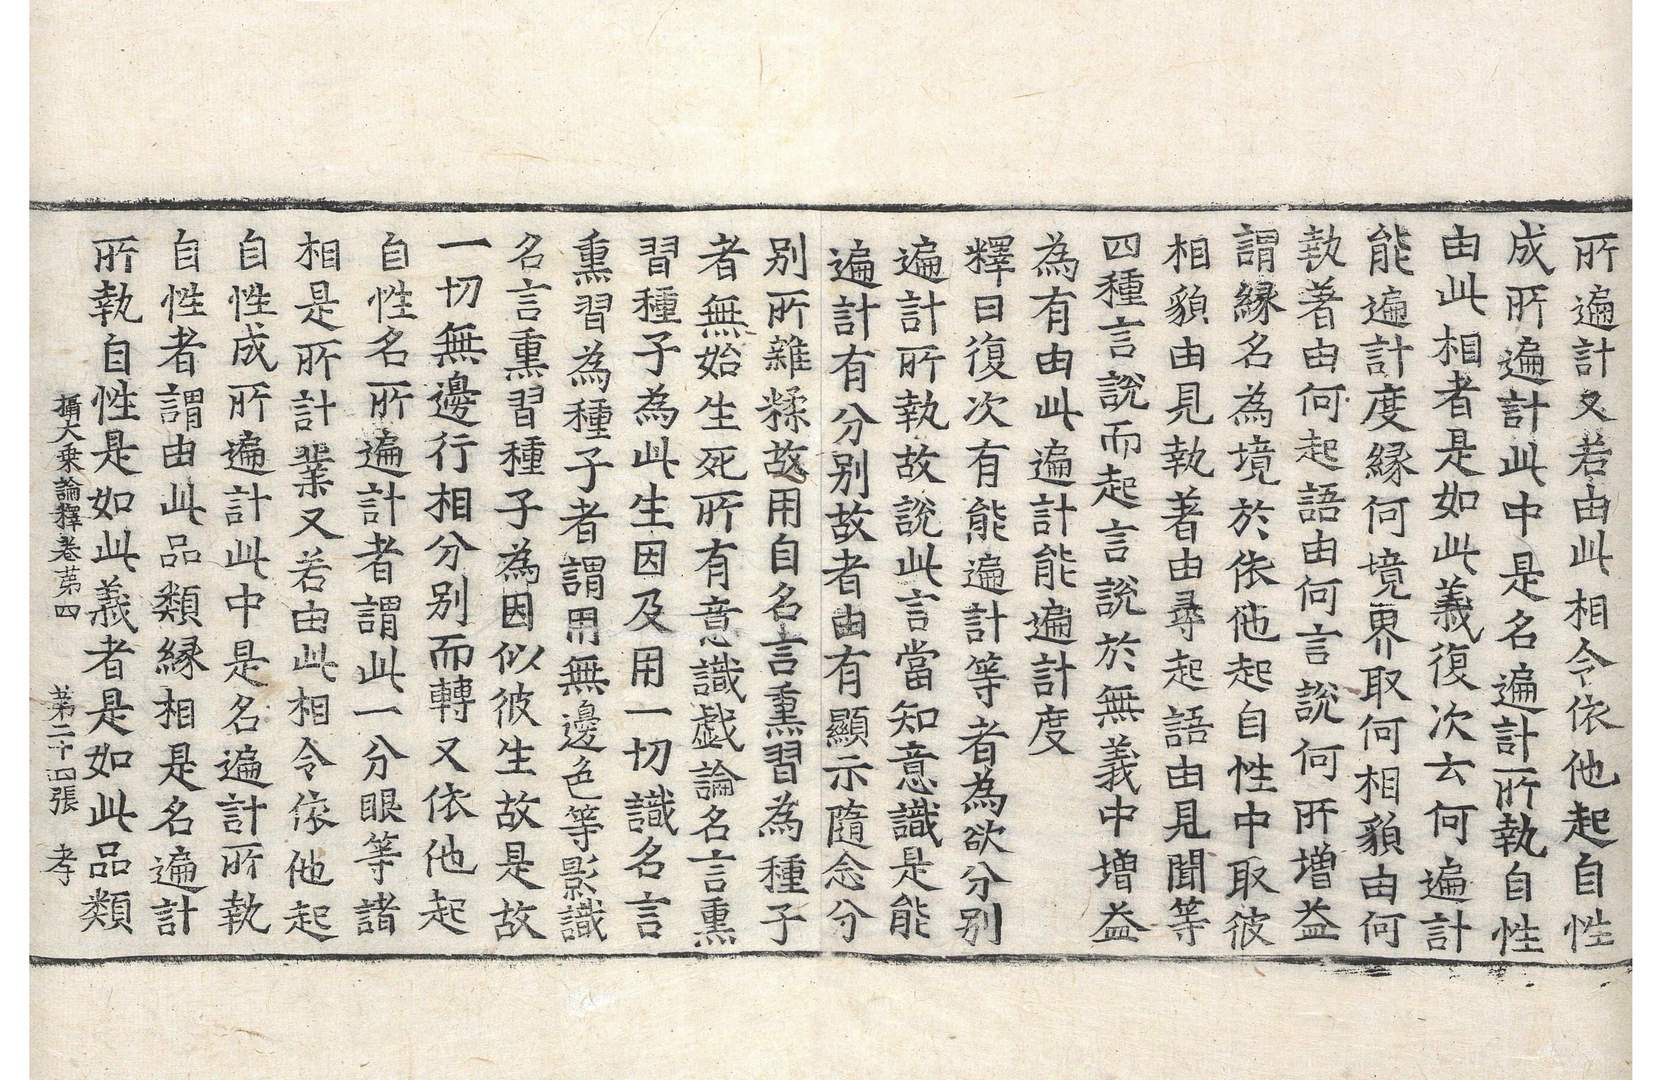 所遍計又若由此相令依他起自性
成所遍計此中是名遍計所執自性
由此相者是如此義復次云何遍計
能遍計度緣何境界取何相貌由何
執著由何起語由何言說何所增益
謂緣名為境於依他起自性中取彼
相貌由見執著由尋起語由見聞等
四種言說而起言說於無義中增益
為有由此遍計能遍計度
釋曰復次有能遍計等者為欲分別
遍計所執故說此言當知意識是能
遍計有分別故者由有顯示隨念分
別所雜糅故用自名言熏習為種子
者無始生死所有意識戲論名言熏
習種子為此生因及用一切識名言
熏習為種子者謂用無邊色等影識
名言熏習種子為因似彼生故是故
一切無邊行相分別而轉又依他起
自性名所遍計者謂此一分眼等諸
相是所計業又若由此相令依他起
自性成所遍計此中是名遍計所執
自性者謂由此品類緣相是名遍計
所執自性是如此義者是如此品類
攝大乗論釋卷苐四 苐二十四張 孝